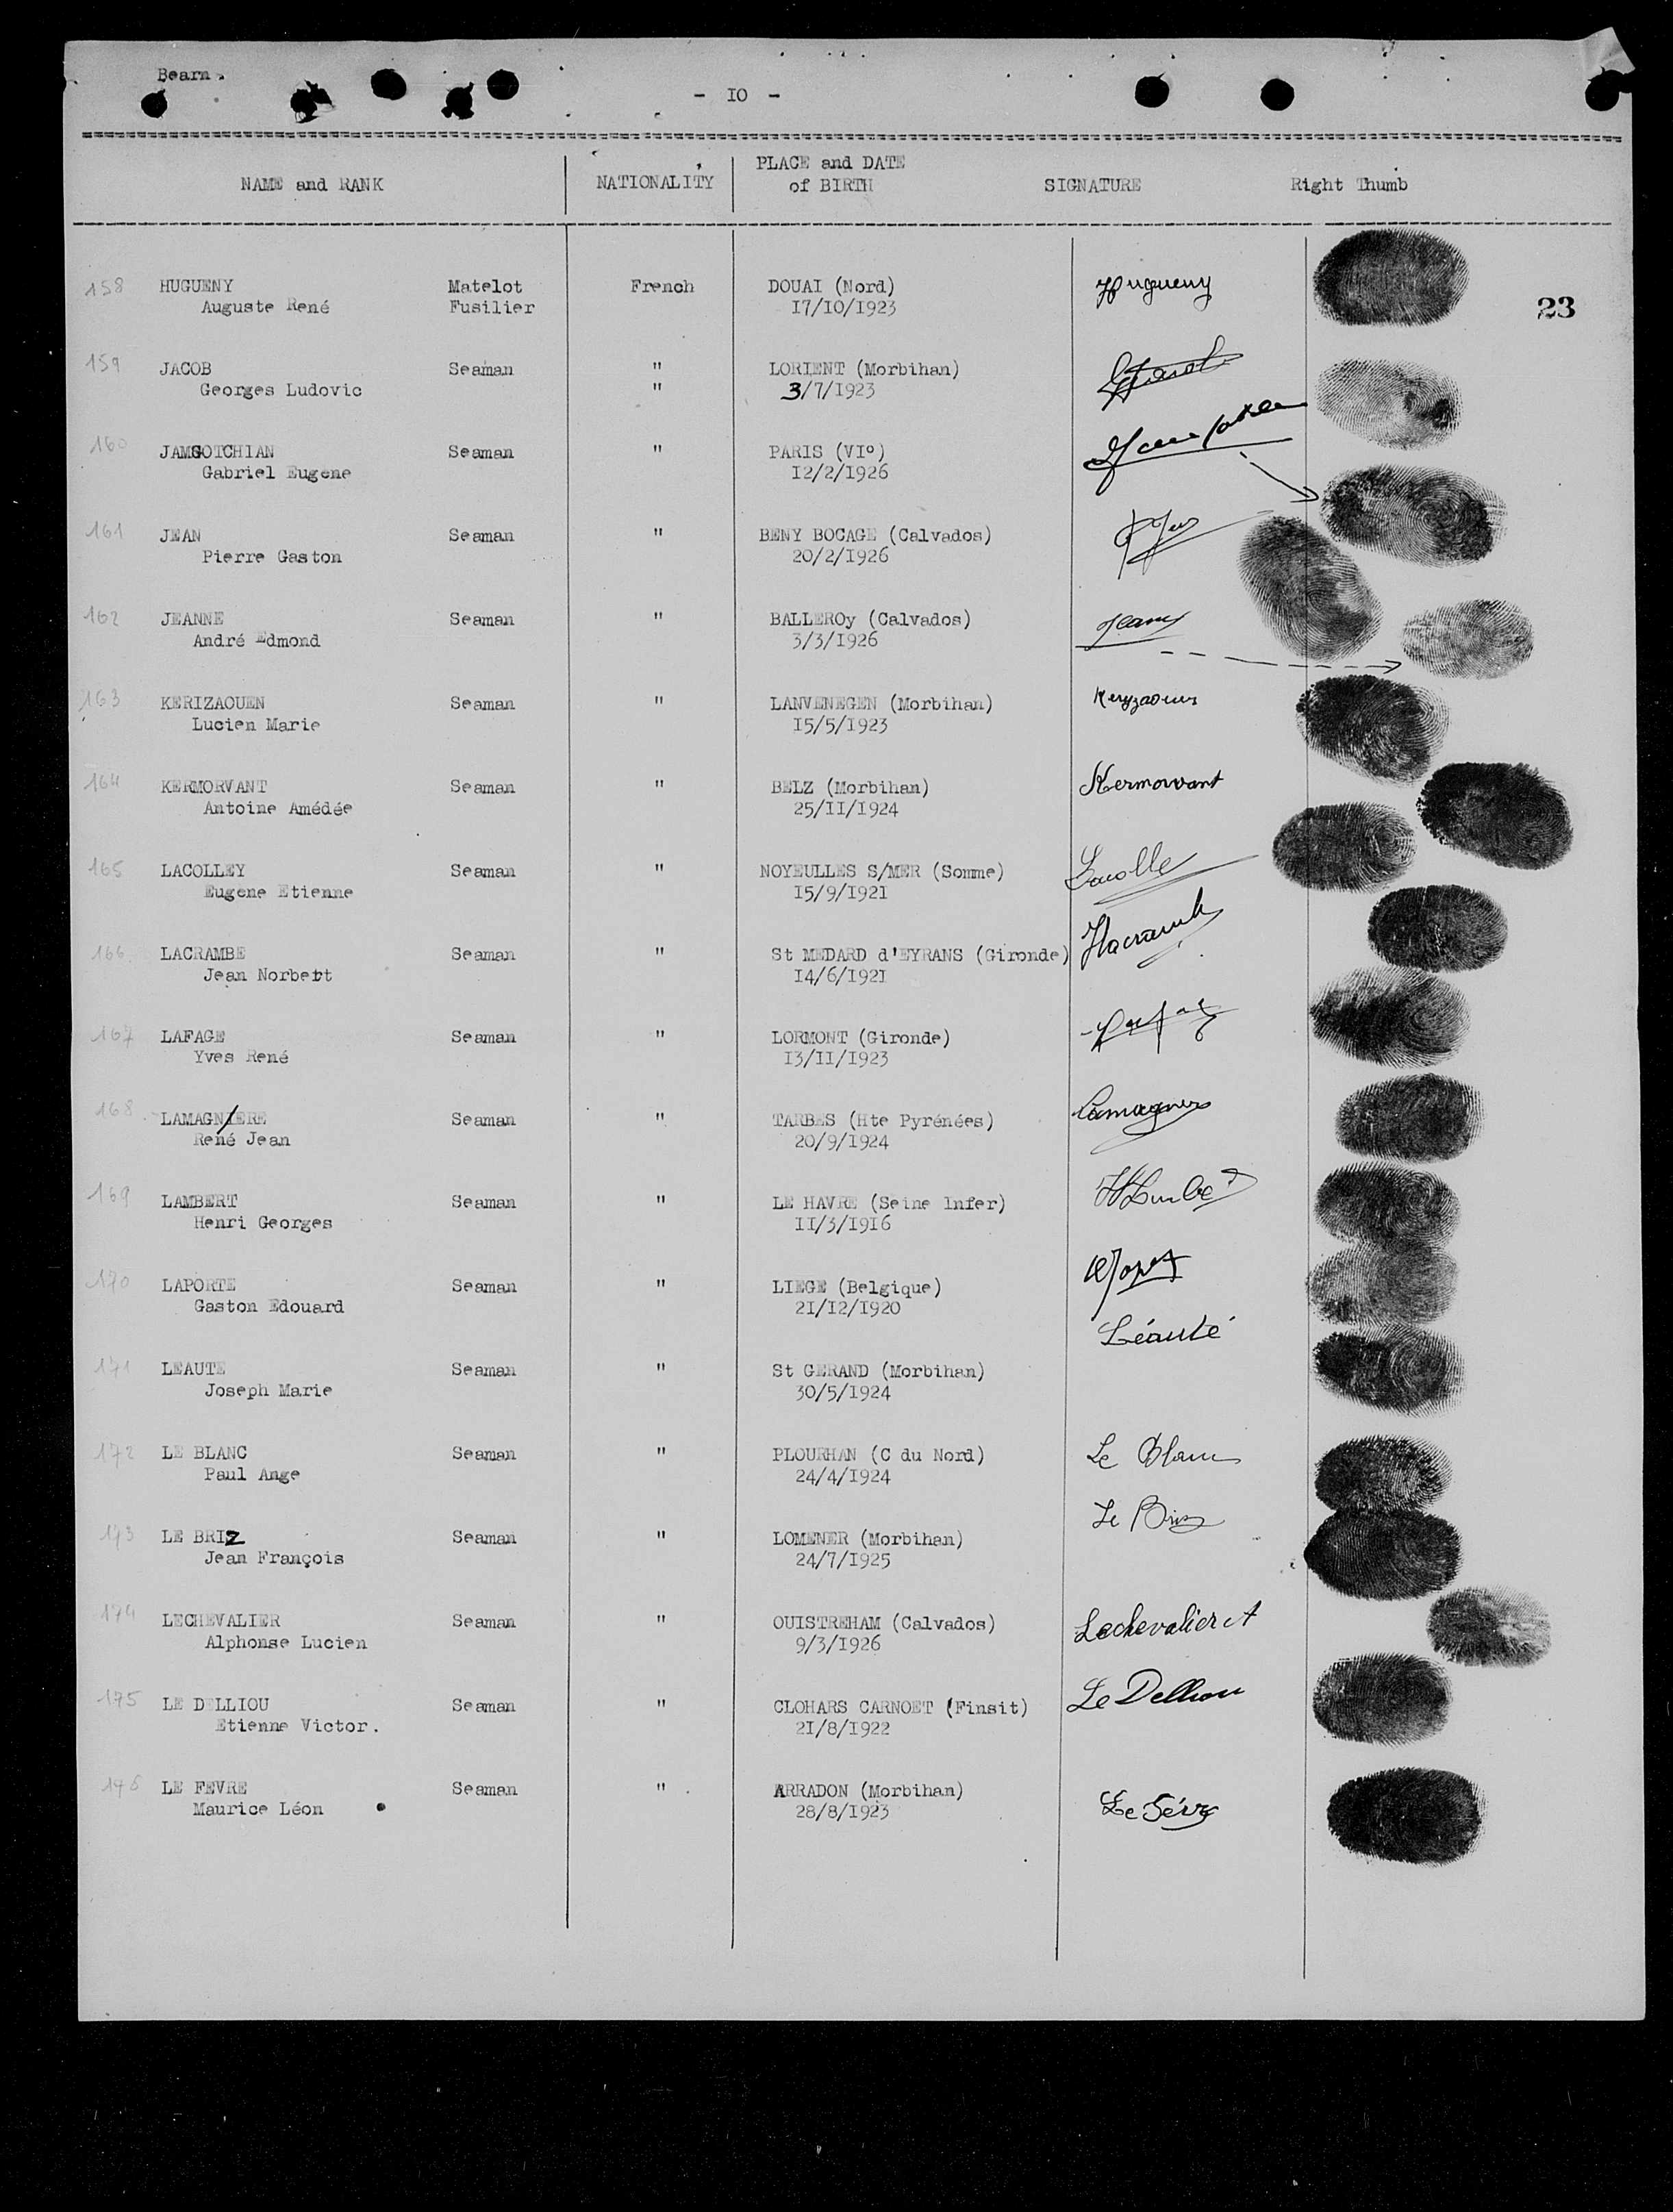 Bearn.
- IO -
NAME and RANK NATIONALITY PLACE and DATE of BIRTH SIGNATURE Right Thumb
158 HUGUENY Matelot French DOUAI (Nord) Hugueny
Auguste René Fusilier I7/IO/I923
23
159 JACOB Seaman " LORIENT (Morbihan)
Georges Ludovic " 3/7/I923
160 JAMGOTCHIAN Seaman " PARIS (VI°)
Gabriel Eugene I2/2/I926
161 JEAN Seaman " BENY BOCAGE (Calvados)
Pierre Gaston 20/2/I926
162 JEANNE Seaman " BALLEROy (Calvados)
André Edmond 3/3/I926
163 KERIZAOUEN Seaman " LANVENEGEN (Morbihan) Keryzaouen
Lucien Marie I5/5/I923
164 KERMORVANT Seaman " BELZ (Morbihan) Kermorvant
Antoine Amédée 25/II/I924
165 LACOLLEY Seaman " NOYEULLES S/MER (Somme)
Eugene Etienne I5/9/I92I
166 LACRAMBE Seaman " St MEDARD d'EYRANS (Gironde)
Jean Norbert I4/6/I92I
167 LAFAGE Seaman " LORMONT (Gironde)
Yves René I3/II/I923
168 LAMAGNIERE Seaman " TARBES (Hte Pyrénées)
René Jean 20/9/I924
169 LAMBERT Seaman " LE HAVRE (Seine Infer)
Henri Georges II/3/I9I6
170 LAPORTE Seaman " LIEGE (Belgique)
Gaston Edouard 2I/I2/I920
Léauté
171 LEAUTE Seaman " St GERAND (Morbihan)
Joseph Marie 30/5/I924
172 LE BLANC Seaman " PLOURHAN (C du Nord) Le Blanc
Paul Ange 24/4/I924
173 LE BRIZ Seaman " LOMENER (Morbihan) Le Briz
Jean François 24/7/I925
174 LECHEVALIER Seaman " OUISTREHAM (Calvados) Lechevalier A
Alphonse Lucien 9/3/I926
175 LE DELLIOU Seaman " CLOHARS CARNOET (Finsit) Le Delliou
Etienne Victor. 2I/8/I922
176 LE FEVRE Seaman " ARRADON (Morbihan) Le Févre
Maurice Léon 28/8/I923